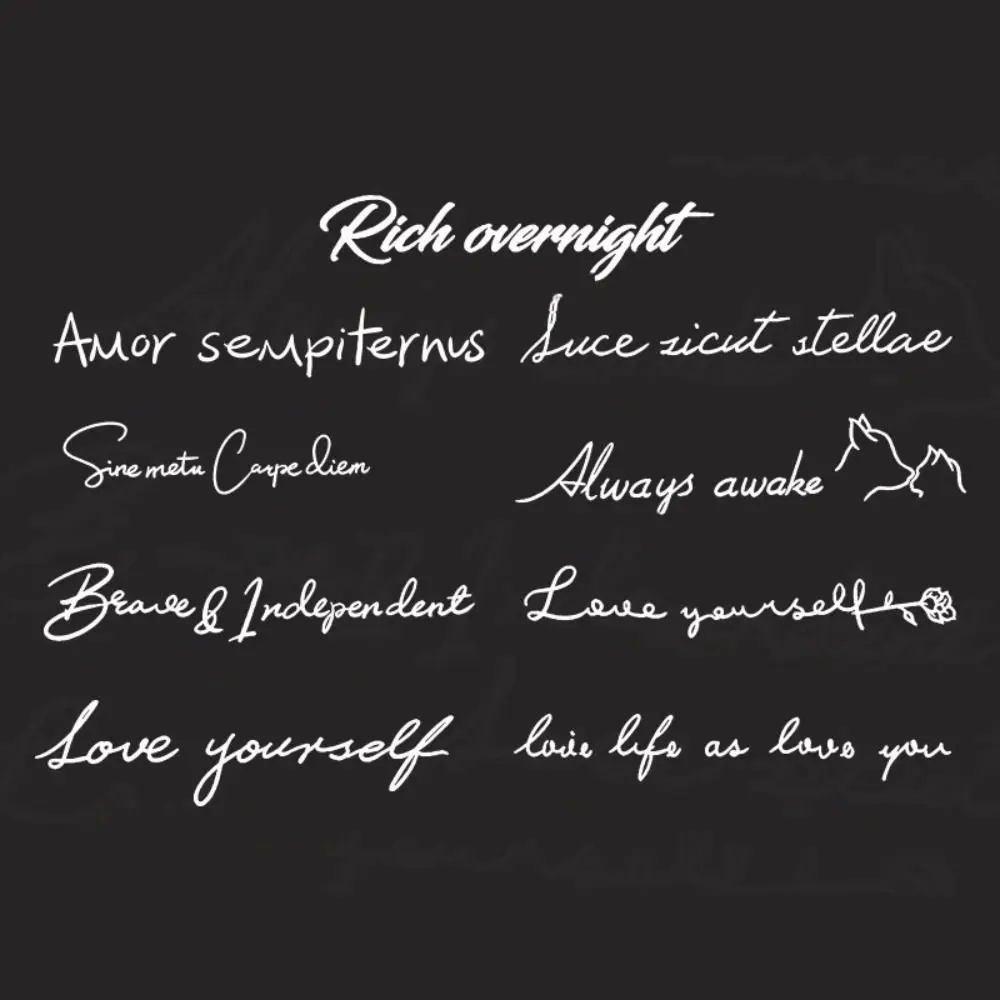 Rich overnight
Amor sempiternus
Luce sicut stellae
Sine metu Carpe diem
Always awake
Brave & Independent
Love yourself
Love yourself
love life as love you